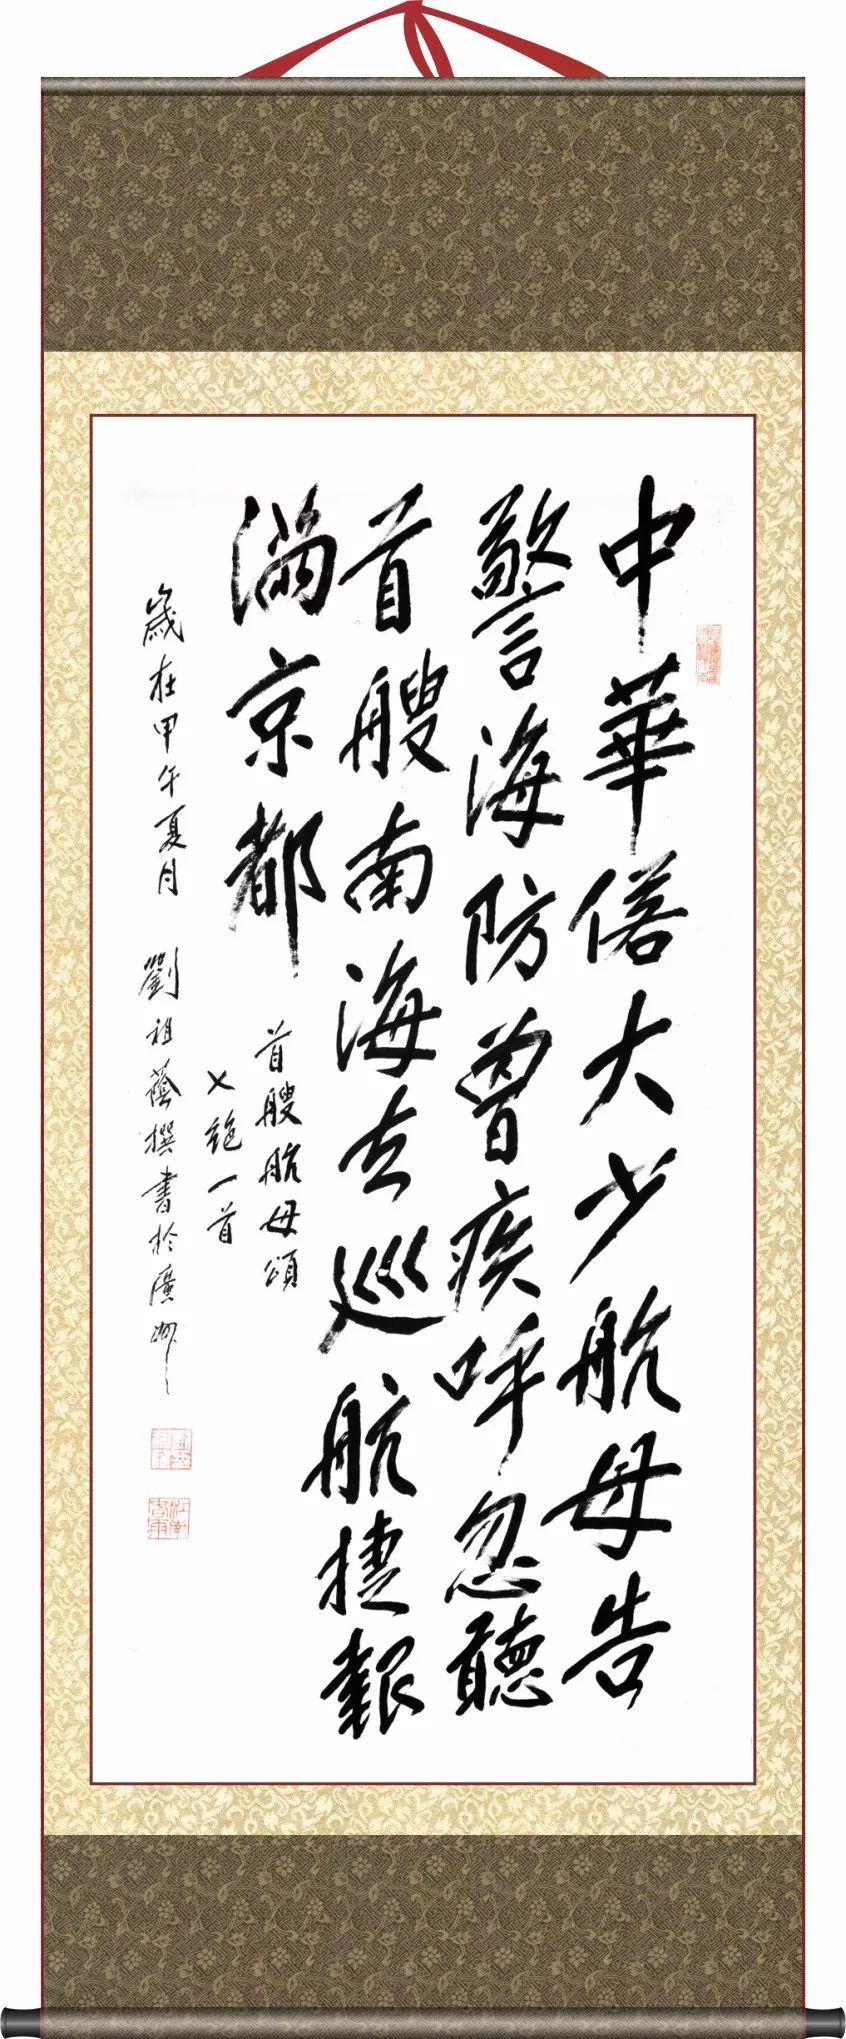 中華偌大少航母告
警海防曾疾呼忽聽
首艘南海去巡航捷報
滿京都
首艘航母頌
七絕一首
歲在甲午夏月 劉祖蔭撰書於廣州